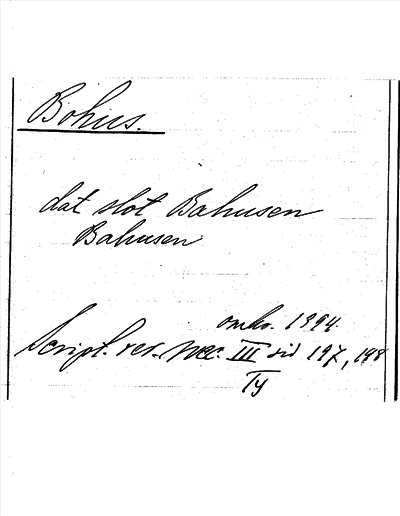 Bohus.
dat slot Bahusen
Bahusen
omkr. 1394.
Script. rer. svec. III sid 197, 198
Ty